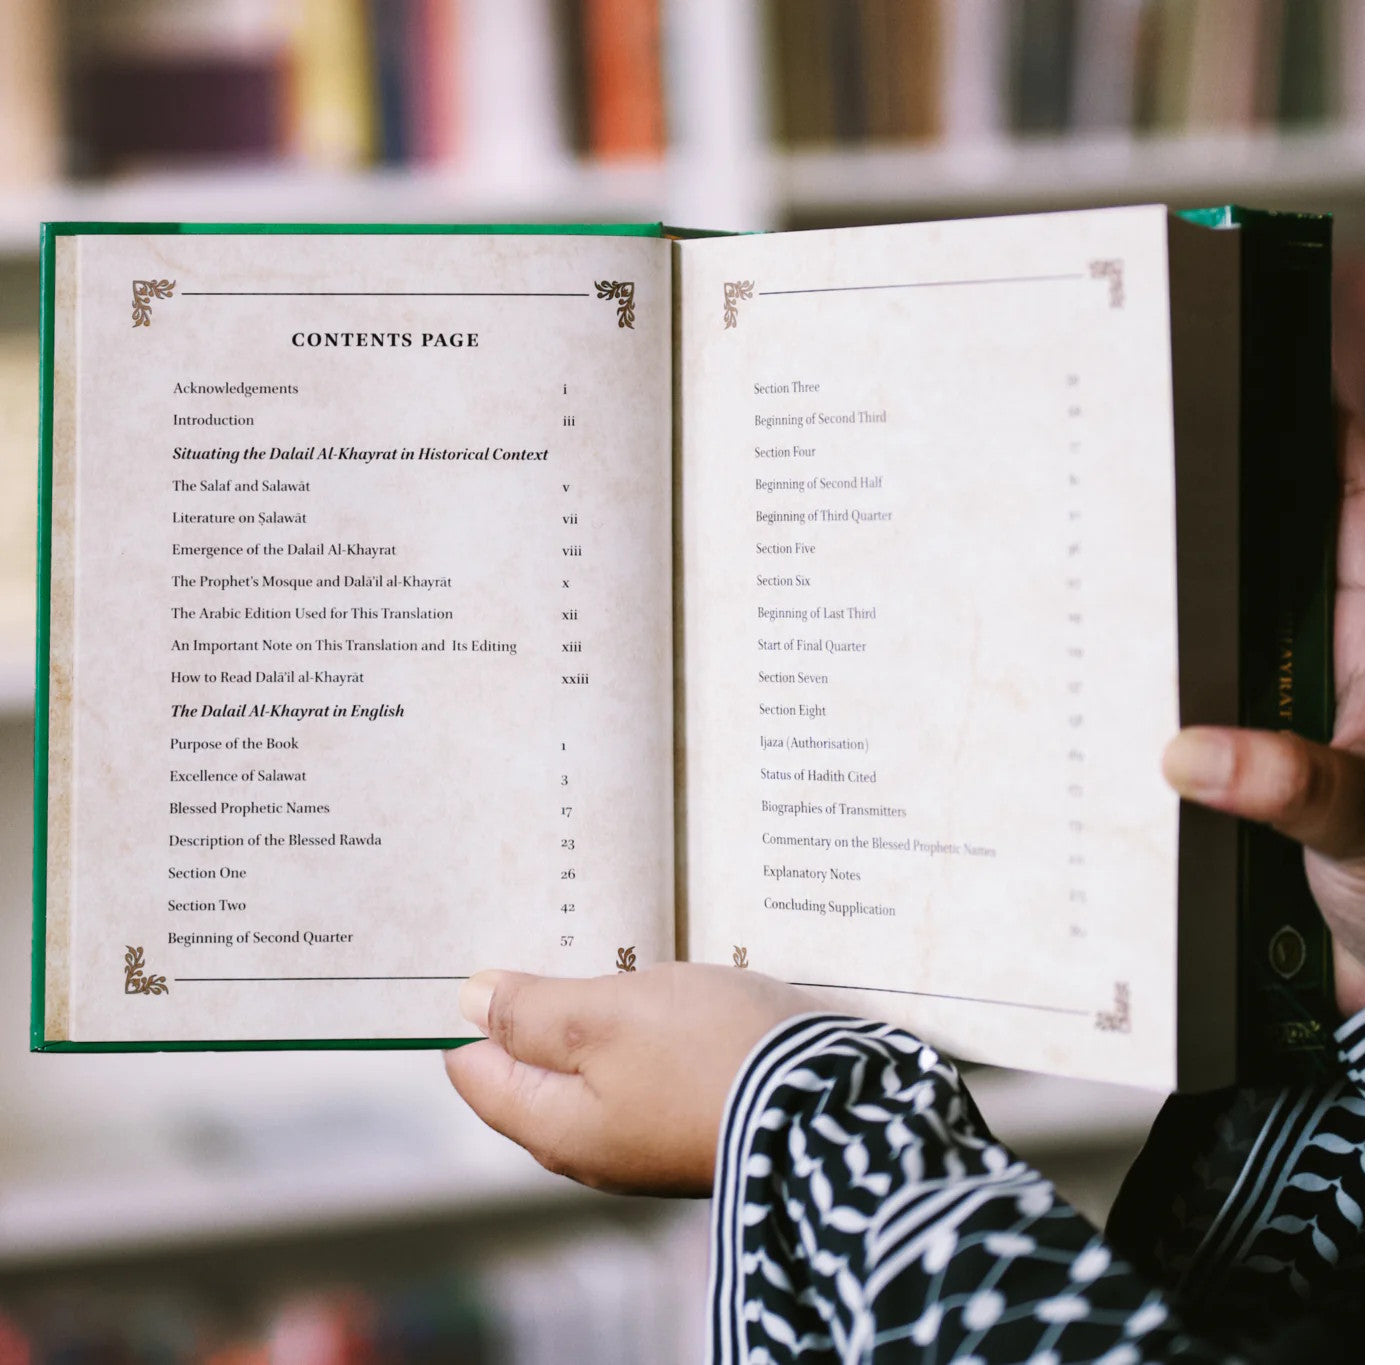 CONTENTS PAGE
Acknowledgements i
Introduction iii
Situating the Dalail Al-Khayrat in Historical Context
The Salaf and Salawāt v
Literature on Ṣalawāt vii
Emergence of the Dalail Al-Khayrat viii
The Prophet's Mosque and Dalā'il al-Khayrāt x
The Arabic Edition Used for This Translation xii
An Important Note on This Translation and Its Editing xiii
How to Read Dalā'il al-Khayrāt xxiii
The Dalail Al-Khayrat in English
Purpose of the Book 1
Excellence of Salawat 3
Blessed Prophetic Names 17
Description of the Blessed Rawda 23
Section One 26
Section Two 42
Beginning of Second Quarter 57
Section Three
Beginning of Second Third
Section Four
Beginning of Second Half
Beginning of Third Quarter
Section Five
Section Six
Beginning of Last Third
Start of Final Quarter
Section Seven
Section Eight
Ijaza (Authorisation)
Status of Hadith Cited
Biographies of Transmitters
Commentary on the Blessed Prophetic Names
Explanatory Notes
Concluding Supplication